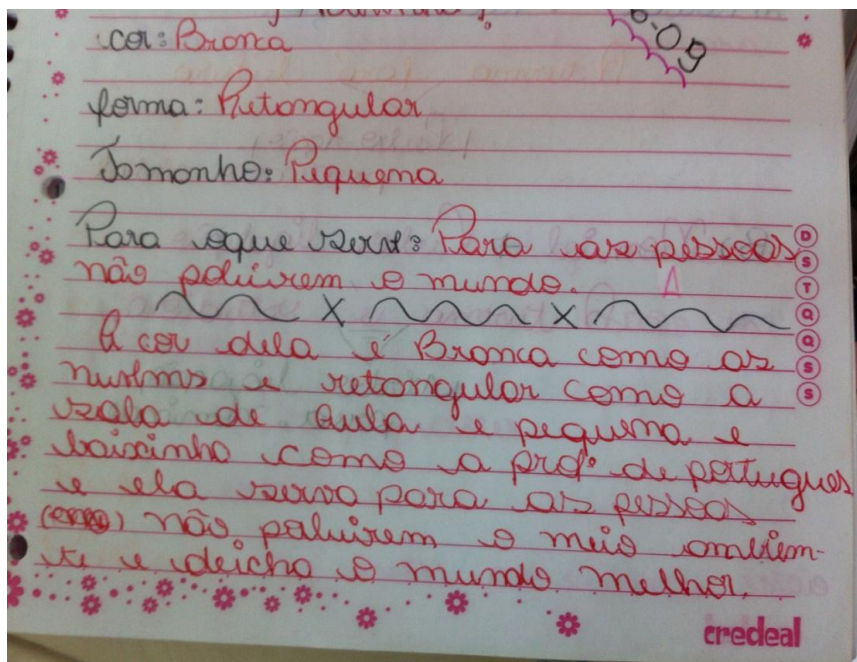 6.09
cor: Branca
forma: Retangular
Tamanho: Pequena
Para oque serve: Para as pessoas
não poluirem o mundo.
x x
A cor dela é Branca como as
e retangular como a
sala de aula e pequena e
baixinha como a profª de portugues
e ela servo para as pessoas
não poluirem o meio ambiem-
te e deicha o mundo melhor.
D
S
T
Q
Q
S
S
credeal